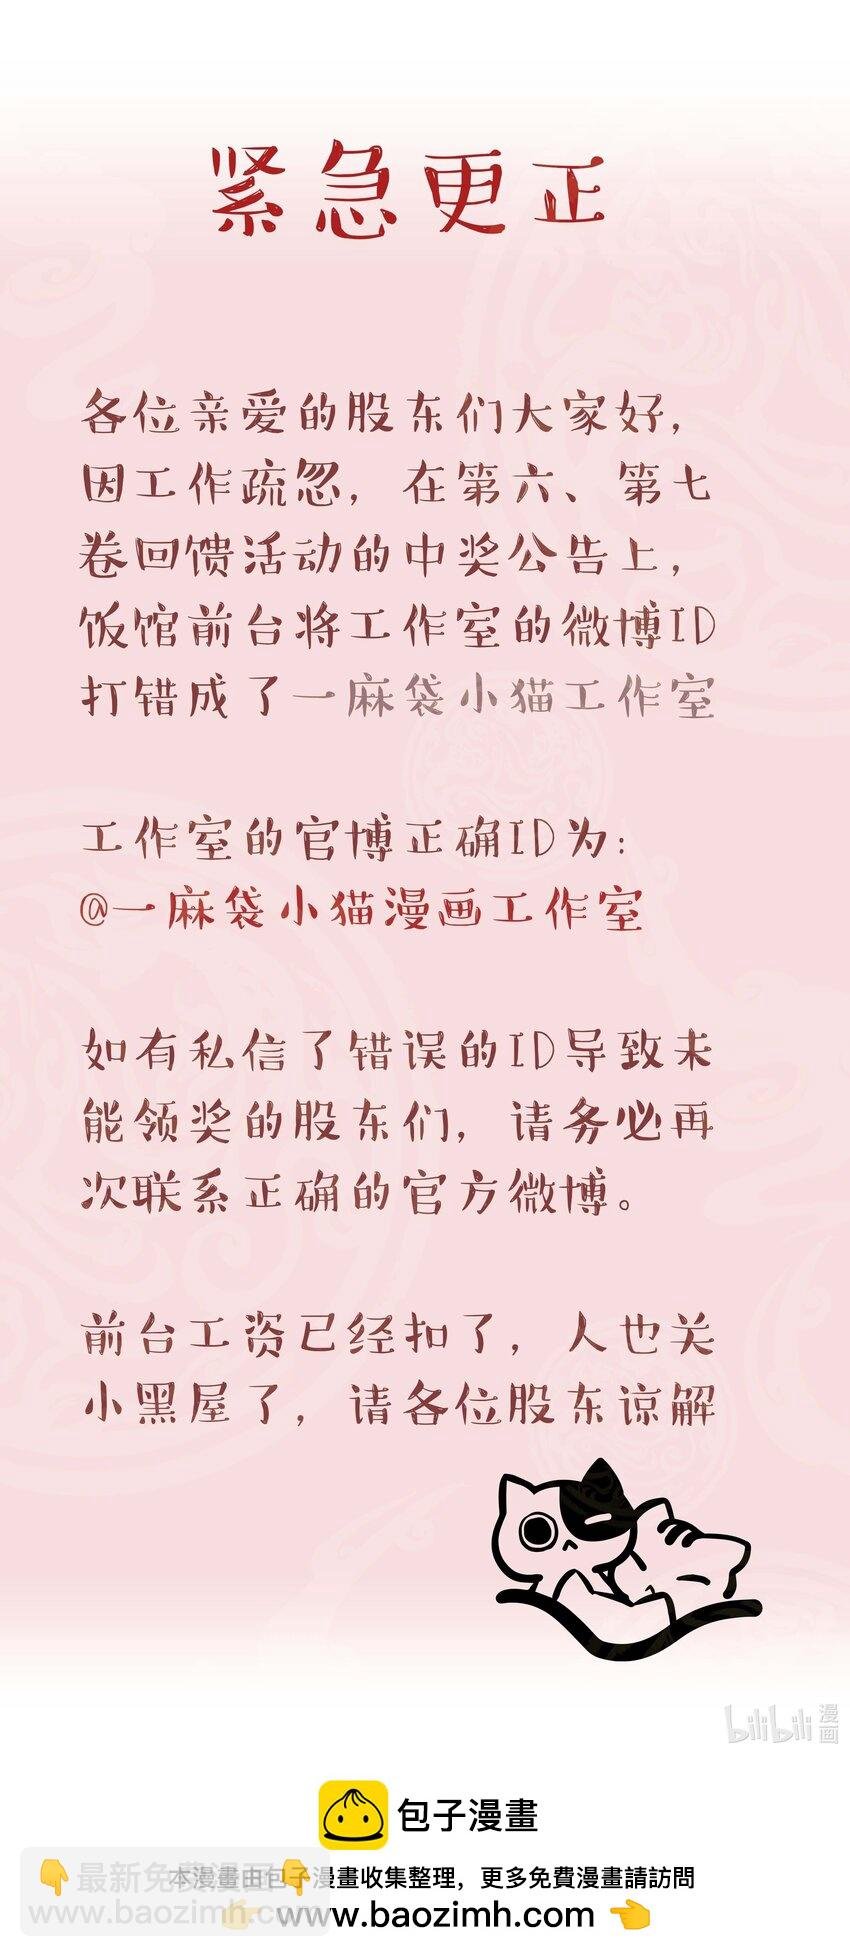 紧急更正
各位亲爱的股东们大家好，
因工作疏忽，在第六、第七
卷回馈活动的中奖公告上，
饭馆前台将工作室的微博ID
打错成了一麻袋小猫工作室
工作室的官博正确ID为：
@一麻袋小猫漫画工作室
如有私信了错误的ID导致未
能领奖的股东们，请务必再
次联系正确的官方微博。
前台工资已经扣了，人也关
小黑屋了，请各位股东谅解
bilibili 漫画
包子漫畫
👇最新免費漫画👇
www.baozimh.com
本漫畫由包子漫畫收集整理，更多免費漫畫請訪問
👉 www.baozimh.com 👈